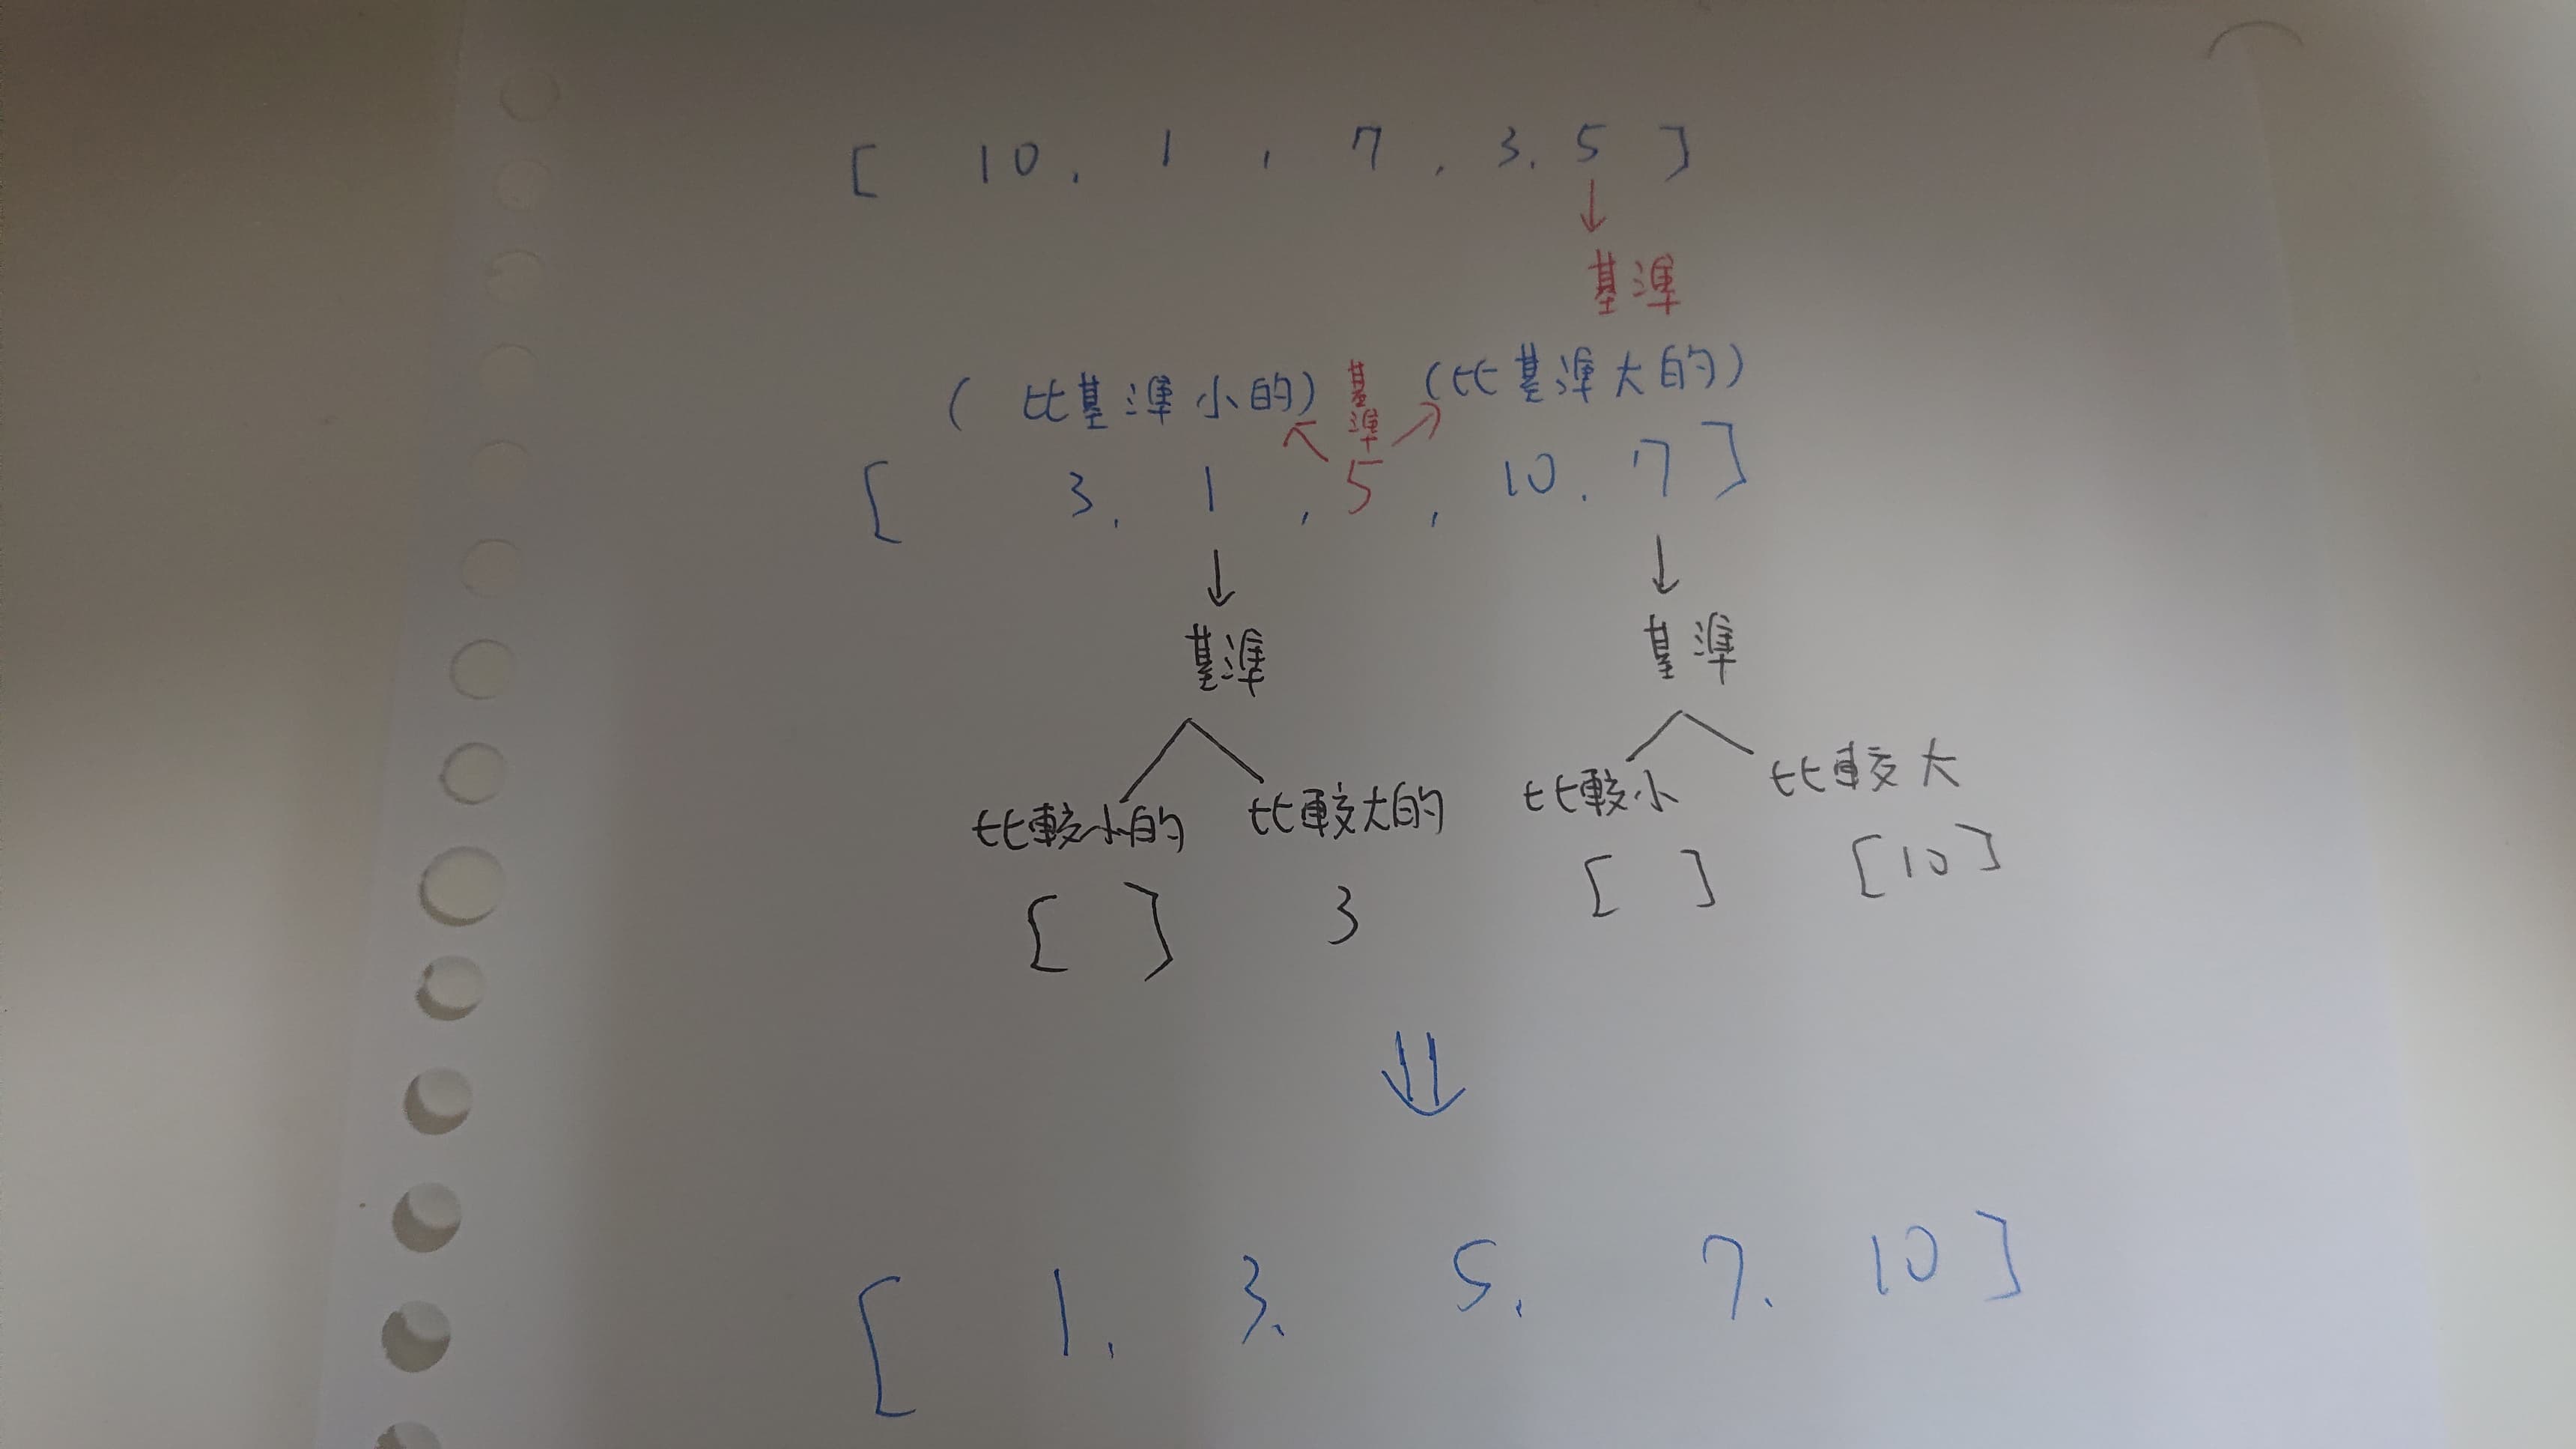 [ 10, 1 , 7 , 3, 5 ]
基準
( 比基準小的) 基準 (比基準大的)
[ 3, 1 , 5 , 10, 7 ]
基準 基準
比較小的 比較大的 比較小 比較大
[ ] 3 [ ] [10]
[ 1, 3, 5, 7, 10 ]